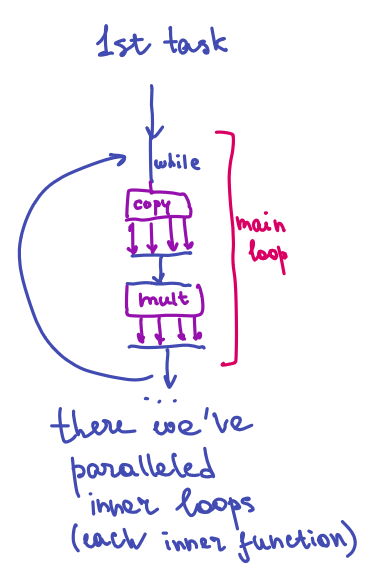 1st task
while
copy
main
loop
mult
...
there we've
paralleled
inner loops
(each inner function)